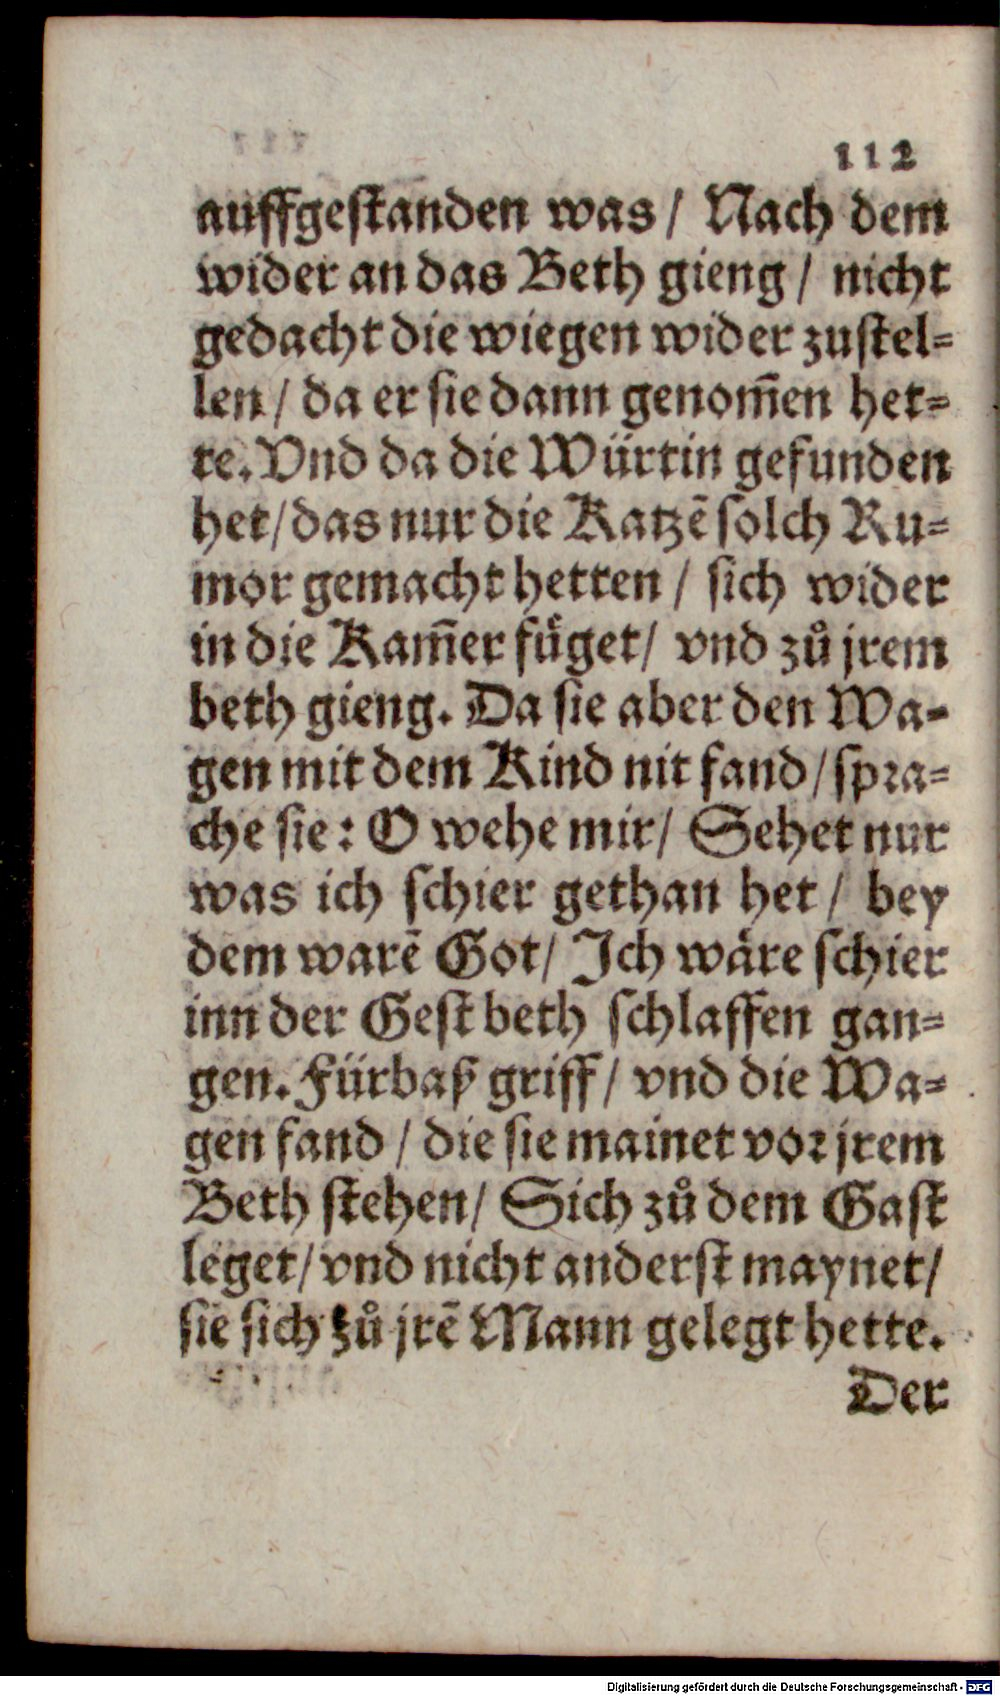 112
auffgestanden was/ Nach dem
wider an das Beth gieng/ nicht
gedacht die wiegen wider zustel-
len/ da er sie dann genom̃en het-
te. Vnd da die Würtin gefunden
het/ das nur die Katzẽ solch Ru-
mor gemacht hetten/ sich wider
in die Kam̃er fuͤget/ vnd zuͦ jrem
beth gieng. Da sie aber den Wa-
gen mit dem Kind nit fand/ spra-
che sie: O wehe mir/ Sehet nur
was ich schier gethan het/ bey
dem warẽ Got/ Ich waͤre schier
inn der Gest beth schlaffen gan-
gen. Fürbaß griff/ vnd die Wa-
gen fand/ die sie mainet vor jrem
Beth stehen/ Sich zuͦ dem Gast
leget/ vnd nicht anderst maynet/
sie sich zuͦ jrẽ Mann gelegt hette.
Der
Digitalisierung gefördert durch die Deutsche Forschungsgemeinschaft - DFG